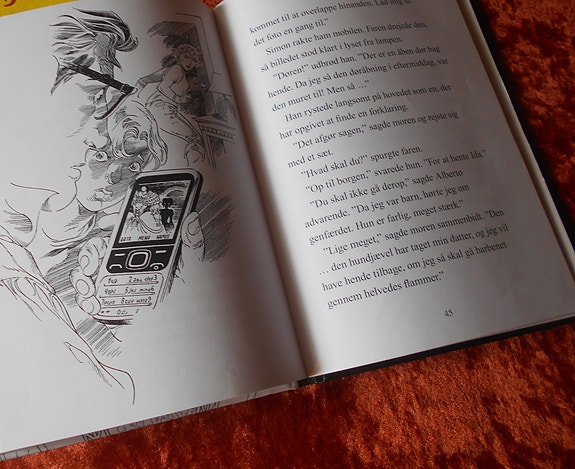 GOTO MENU NAMES
kommet til at overlappe hinanden. Lad mig se
det foto en gang til."
Simon rakte ham mobilen. Faren drejede den,
så billedet stod klart i lyset fra lampen.
"Døren!" udbrød han. "Der er en åben dør bag
hende. Da jeg så den døråbning i eftermiddag, var
den muret til! Men så …"
Han rystede langsomt på hovedet som en, der
har opgivet at finde en forklaring.
"Det afgør sagen," sagde moren og rejste sig
med et sæt.
"Hvad skal du?" spurgte faren.
"Op til borgen," svarede hun. "For at hente Ida."
"Du skal ikke gå derop," sagde Alberto
advarende. "Da jeg var barn, hørte jeg om
genfærdet. Hun er farlig, meget stærk."
"Lige meget," sagde moren sammenbidt. "Den
… den hundjævel har taget min datter, og jeg vil
have hende tilbage, om jeg så skal gå barbenet
gennem helvedes flammer."
45